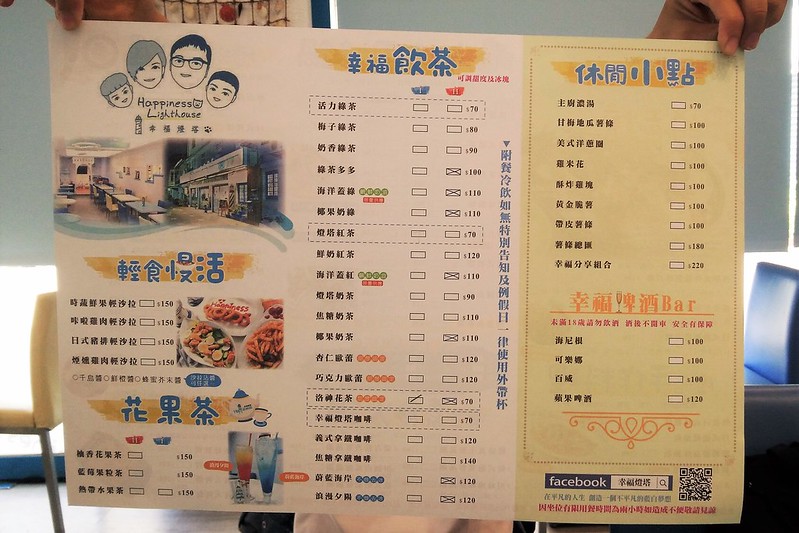 Happiness
Lighthouse
幸福燈塔
輕食慢活
時蔬鮮果輕沙拉 $150
咔啦雞肉輕沙拉 $150
日式豬排輕沙拉 $150
煙燻雞肉輕沙拉 $150
◎千島醬◎鮮橙醬◎蜂蜜芥末醬
花果茶
柚香花果茶 $150
藍莓果粒茶 $150
熱帶水果茶 $150
幸福飲茶
可調甜度及冰塊
活力綠茶 $70
梅子綠茶 $80
奶香綠茶 $90
綠茶多多 $100
海洋蓋綠 $110
椰果奶綠 $110
燈塔紅茶 $70
鮮奶紅茶 $120
海洋蓋紅 $110
燈塔奶茶 $90
焦糖奶茶 $110
椰果奶茶 $110
杏仁歐蕾 $120
巧克力歐蕾 $120
洛神花茶 $70
幸福燈塔咖啡 $70
義式拿鐵咖啡 $120
焦糖拿鐵咖啡 $140
蔚藍海岸 $120
浪漫夕陽 $120
▼附餐冷飲如無特別告知及例假日一律使用外帶杯
休閒小點
主廚濃湯 $70
甘梅地瓜薯條 $100
美式洋蔥圈 $100
雞米花 $100
酥炸雞塊 $100
黃金脆薯 $100
帶皮薯條 $100
薯條總匯 $180
幸福分享組合 $220
幸福啤酒Bar
未滿18歲請勿飲酒 酒後不開車 安全有保障
海尼根 $100
可樂娜 $100
百威 $100
蘋果啤酒 $120
facebook 幸福燈塔
在平凡的人生 創造一個不平凡的藍白夢想
因座位有限用餐時間為兩小時如造成不便敬請見諒